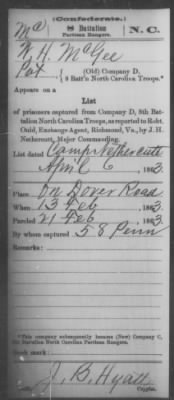 (Confederate.)
Mc 8 Battalion N. C.
Partisan Rangers.
W. H. McGee
Pvt, (Old) Company D,
8 Batt'n North Carolina Troops.*
Appears on a
List
of prisoners captured from Company D, 8th Bat-
talion North Carolina Troops, as reported to Robt.
Ould, Exchange Agent, Richmond, Va., by J. H.
Nethercutt, Major Commanding.
List dated Camp Nethercutt
April 6, 1863.
Place On Dover Road
When 13 Feb, 1863.
Paroled 21 Feb, 1863.
By whom captured 58 Penn
Remarks:
*This company subsequently became (New) Company C,
8th Battalion North Carolina Partisan Rangers.
Book mark:
J. B. Hyatt
Copyist.